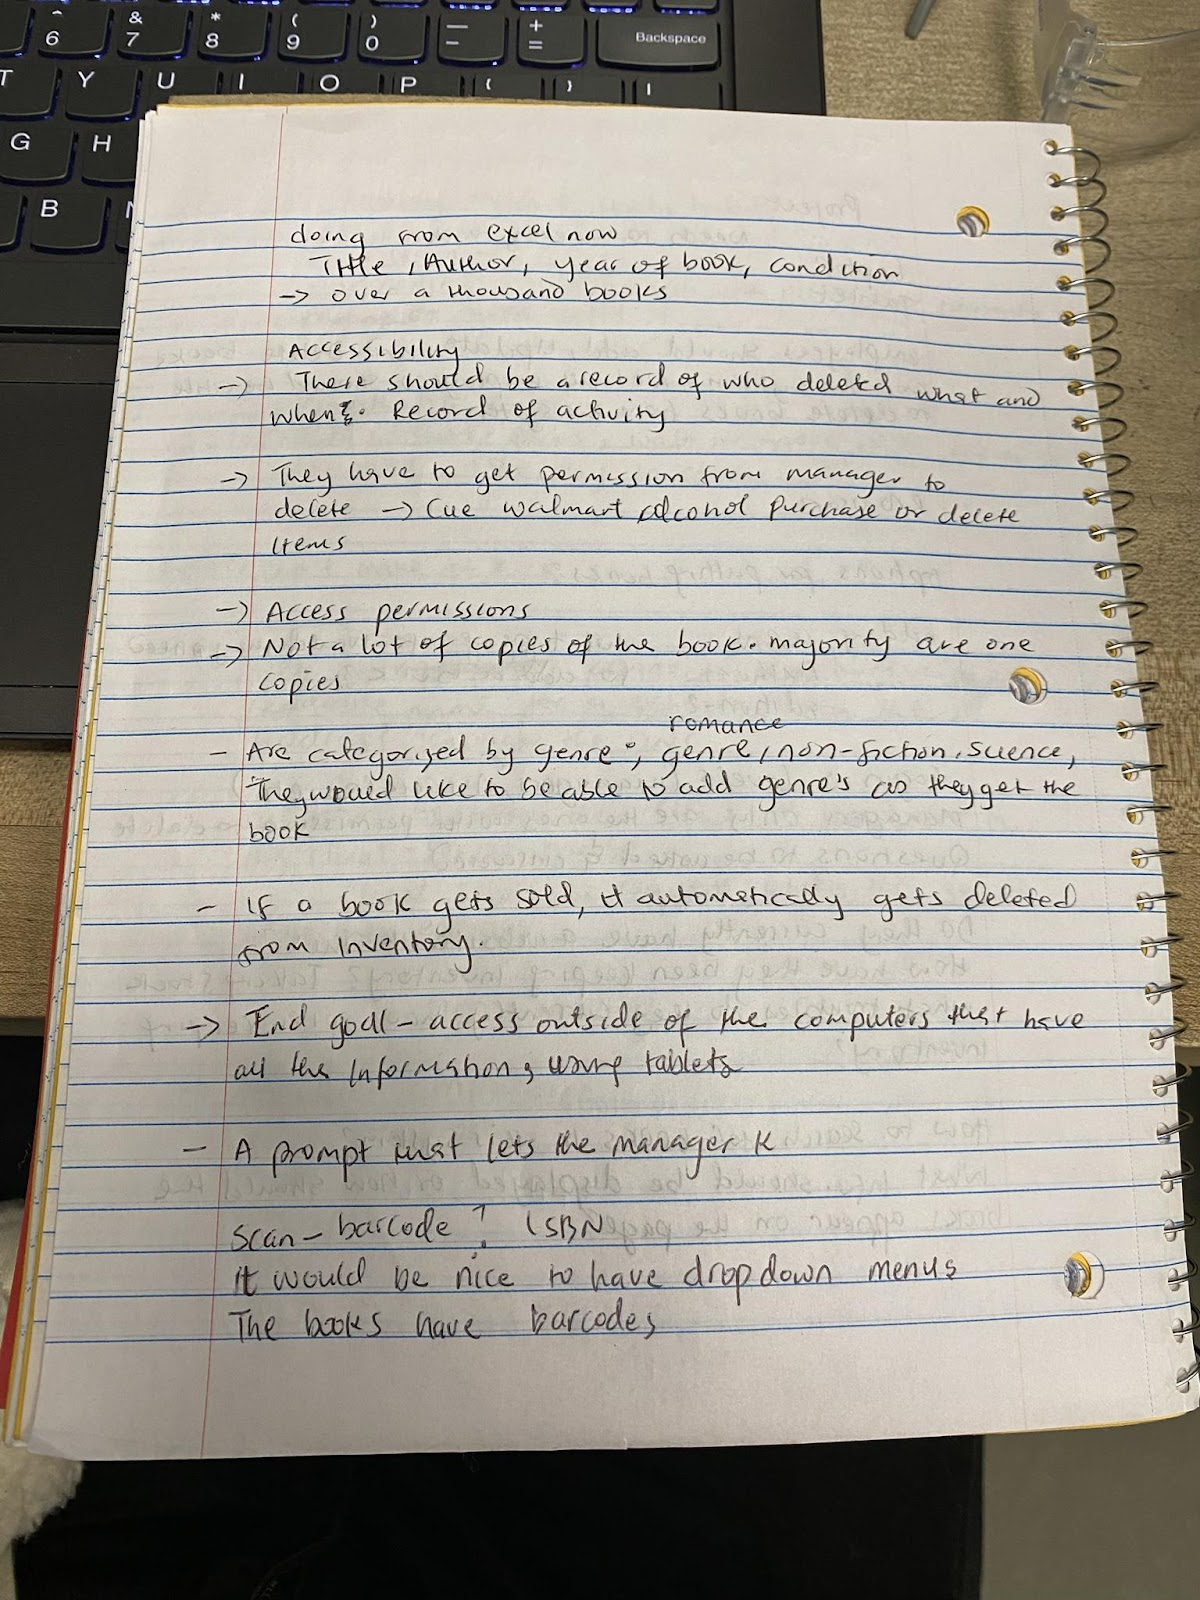 ^ & * ( ) _ +
6 7 8 9 0 - = Backspace
T Y U I O P
G H
B
doing from excel now
Title, Author, year of book, condition
-> over a thousand books
Accessibility
-> There should be a record of who deleted what and
when. Record of activity
-> They have to get permission from manager to
delete -> Cue walmart alcohol purchase or delete
items
-> Access permissions
-> Not a lot of copies of the book. majority are one
copies
romance
- Are categorized by genre; genre, non-fiction, science,
They would like to be able to add genre's as they get the
book
- If a book gets sold, it automatically gets deleted
from inventory.
-> End goal - access outside of the computers that have
all the information, using tablets
- A prompt that lets the manager k
Scan - barcode? ISBN
It would be nice to have drop down menus
The books have barcodes